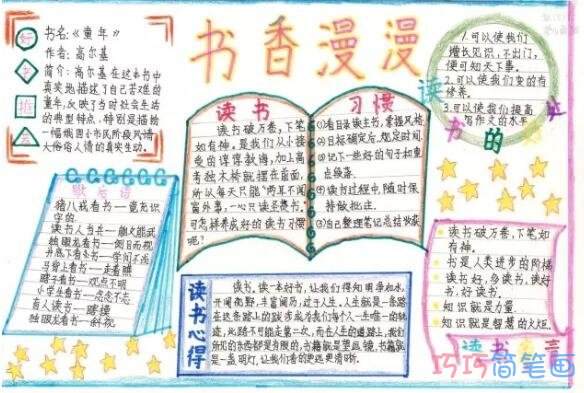 书香漫漫
好书推荐
书名:《童年》
作者:高尔基
简介:高尔基在这本书中
真实地描述了自己苦难的
童年,反映了当时社会生活
的典型特点,特别是描绘
一幅俄国小市民阶级风情
大俗俗人情的真实生动。
歇后语
猪八戒看书——竟充识
字的
独眼龙看书——侧目而视
井底下看书——学问不浅
马背上看书——走着瞧
瞎子看书——观点不明
小学生看书——念念不忘
盲人读书——瞎摸
独眼龙看书——斜视
读书
读书破万卷,下笔
如有神。是我们从小接
受的谆谆教诲,加上高
考独木桥就摆在面前,
所以每天只能“两耳不闻
窗外事,一心只读圣贤书。
可怎样养成好的读书习惯
呢?
习惯
①看目录读主书,掌握风格
②目标确定后,规定时间
③记下一些好的句子和重
点段落.
④读书过程中,随时保
持做批注.
⑤自己整理笔记总结收获
1.可以使我们
增长见识,不出门,
便可知天下事。
2.可以使我们变的有
修养。
3.可以使我们提高
写作文的水平
读书的
读书心得
读书,读一本好书,让我们得知明净如水,
开阔视野,丰富阅历,益于人生。人生就是一条路
在这条路上的跋涉成为我们每个人一生唯一的轨
迹,此路不可能走第二次,而在人生的道路上,我们
所见的东西都是有限的,书籍就是望远镜,书籍就
是一盏明灯,让我们看的更远更清晰。
读书破万卷,下笔如
有神。
书是人类进步的阶梯
读书好,多读书,读好
书,好读书.
知识就是力量.
知识就是智慧的火炬.
读书名言
巧巧简笔画